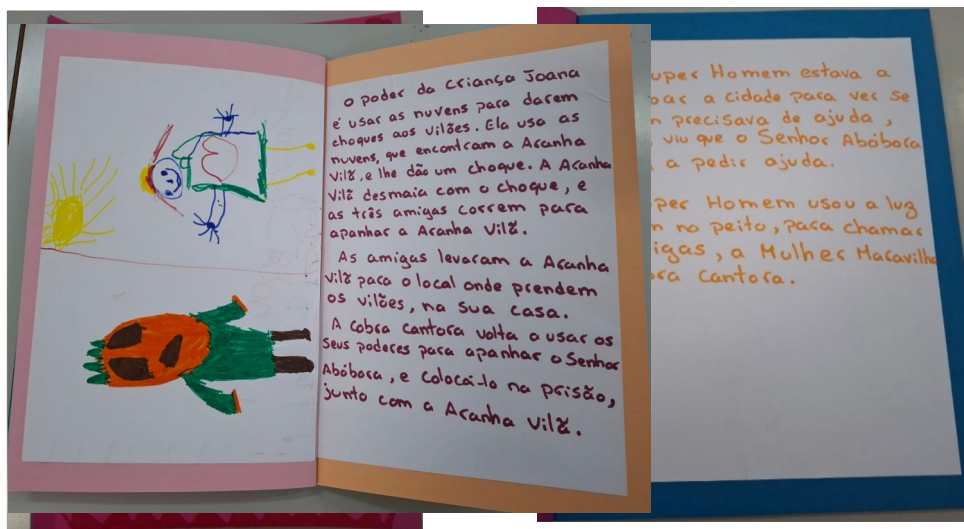 O poder da criança Joana
é usar as nuvens para darem
choques aos vilões. Ela usa as
nuvens, que encontram a Aranha
Vilã, e lhe dão um choque. A Aranha
Vilã desmaia com o choque, e
as três amigas correm para
apanhar a Aranha Vilã.
As amigas levaram a Aranha
Vilã para o local onde prendem
os vilões, na sua casa.
A cobra cantora volta a usar os
seus poderes para apanhar o Senhor
Abóbora, e colocá-lo na prisão,
junto com a Aranha Vilã.
Homem estava a
a cidade para ver se
precisava de ajuda,
viu que o Senhor Abóbora
a pedir ajuda.
Homem usou a luz
no peito, para chamar
a Mulher Maravilha
Cantora.